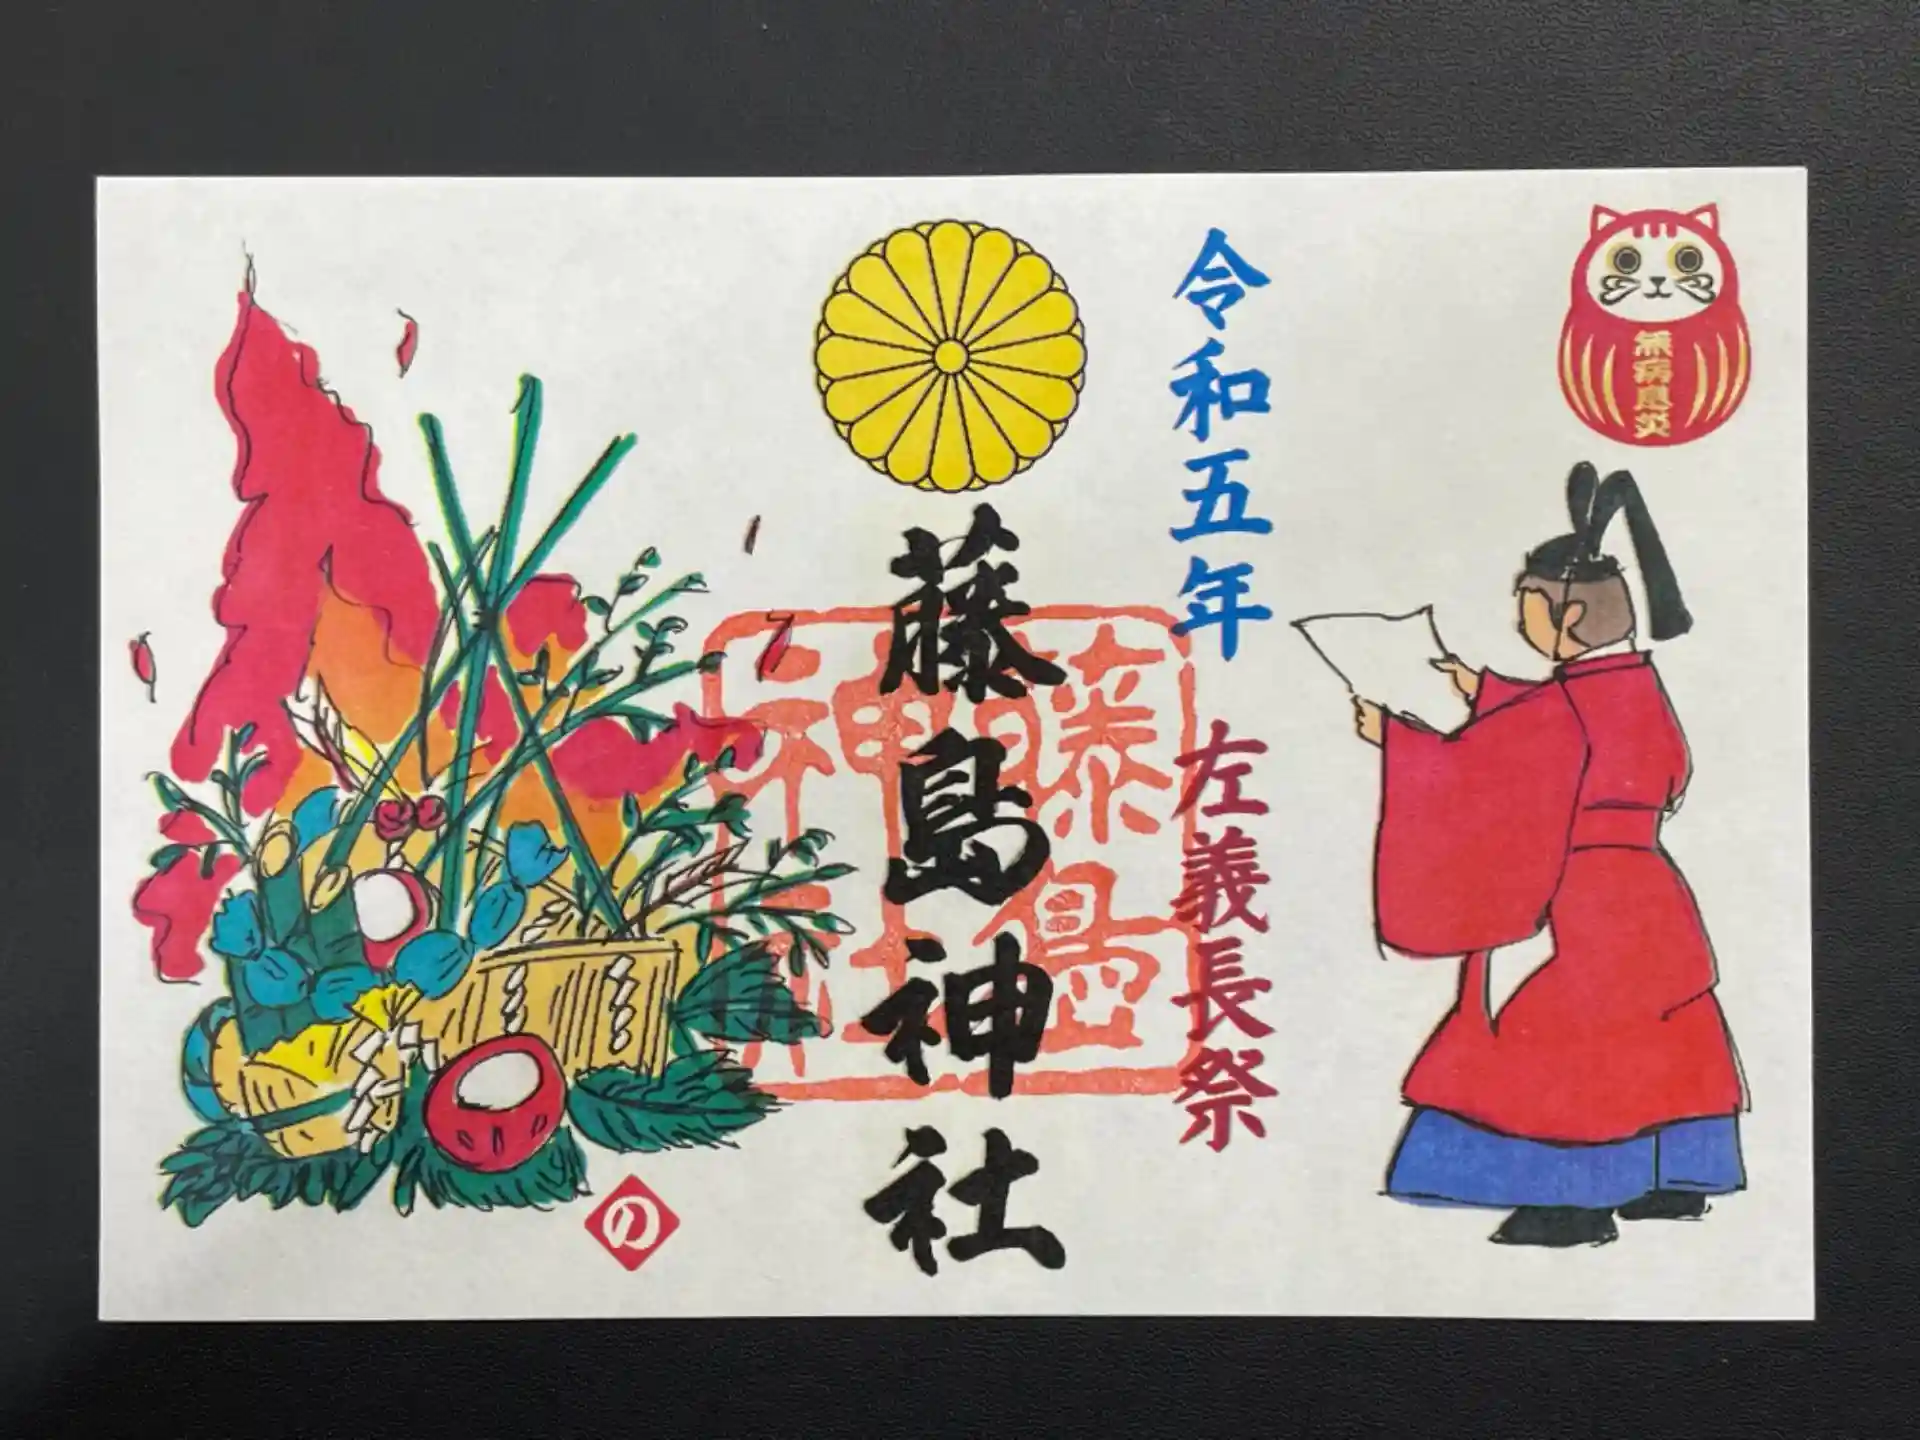 無病息災
令和五年 左義長祭
藤島神社
藤島
神社
の